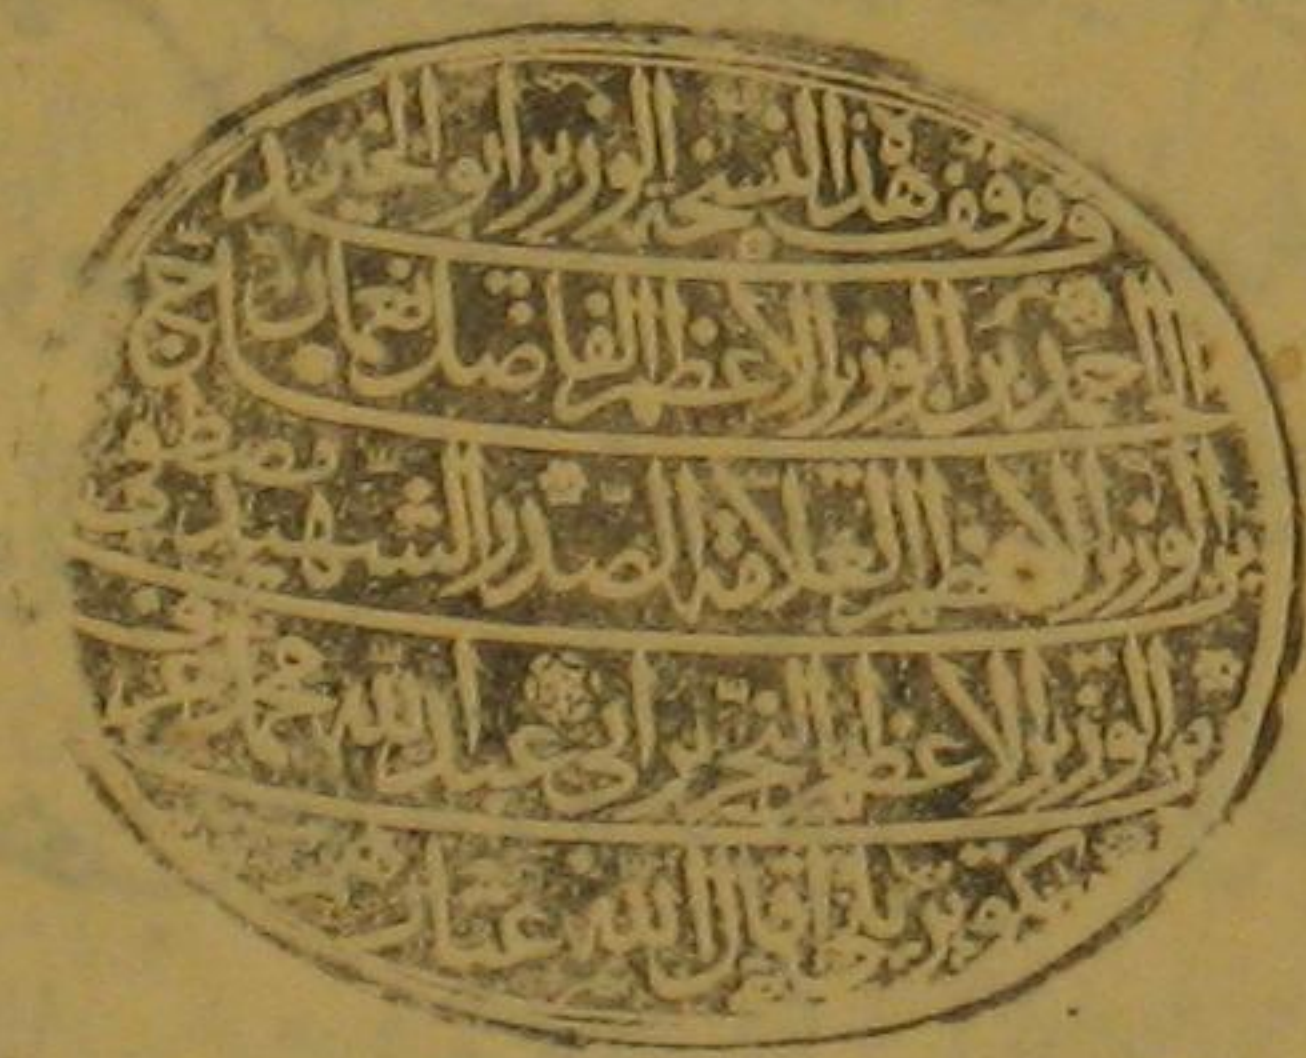 وقف هذه النسخة الوزير ابو الخير
الحاج احمد بن الوزير الاعظم الفاضل نعمان
بن الوزير الاعظم العلامة الصدر الشهيد مصطفى
بن الوزير الاعظم النحرير ابى عبد الله محمد عرف
بكوبريلى اقال الله عثارهم